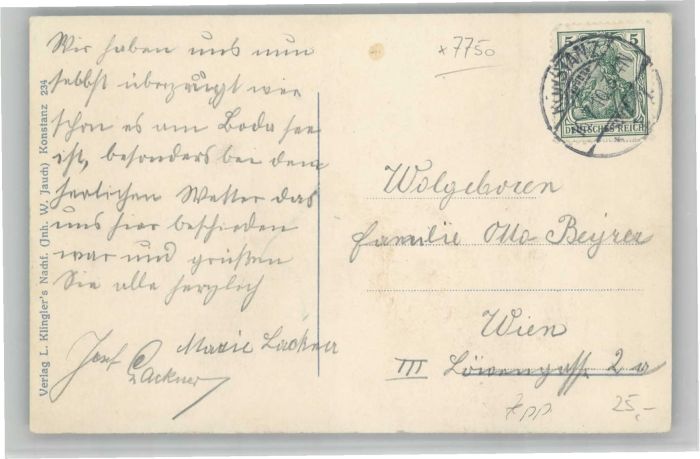 Wir haben uns nun
selbst überzeugt wie
schon es am Boda see
ist, besonders bei dem
herlichen Wetter das
uns hier beschieden
war und grüßen
Sie alle herzlich
Josef Lackner
Marie Lackner
x 7750
5 5
KONSTANZ
DEUTSCHES REICH
Wolgeboren
familie Otto Beyrer
Wien
III Löwengasse 2 a
25,-
Verlag L. Klingler's Nachf. (Jnh. W. Jauch) Konstanz 234